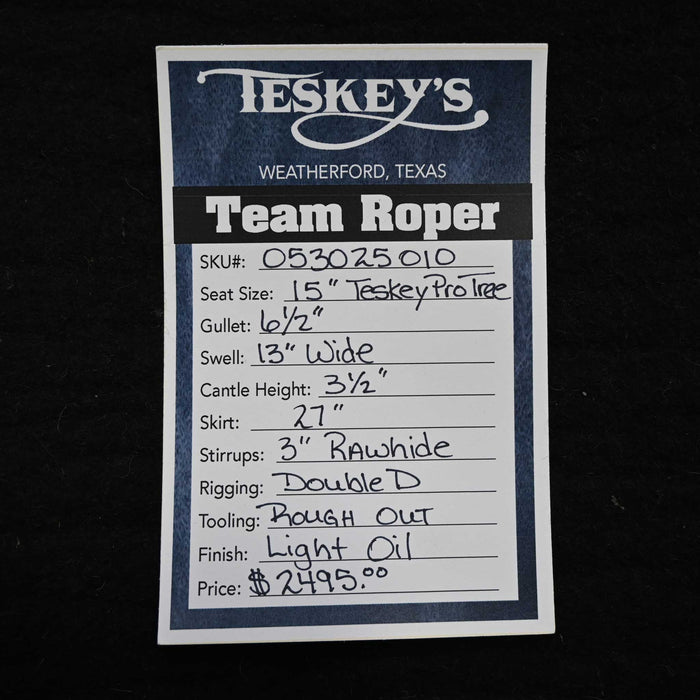 TESKEY'S
WEATHERFORD, TEXAS
Team Roper
SKU#: 053025010
Seat Size: 15" TeskeyProTree
Gullet: 6 1/2"
Swell: 13" Wide
Cantle Height: 3 1/2"
Skirt: 27"
Stirrups: 3" RAwhide
Rigging: Double D
Tooling: ROUGH OUT
Finish: Light Oil
Price: $2495.00